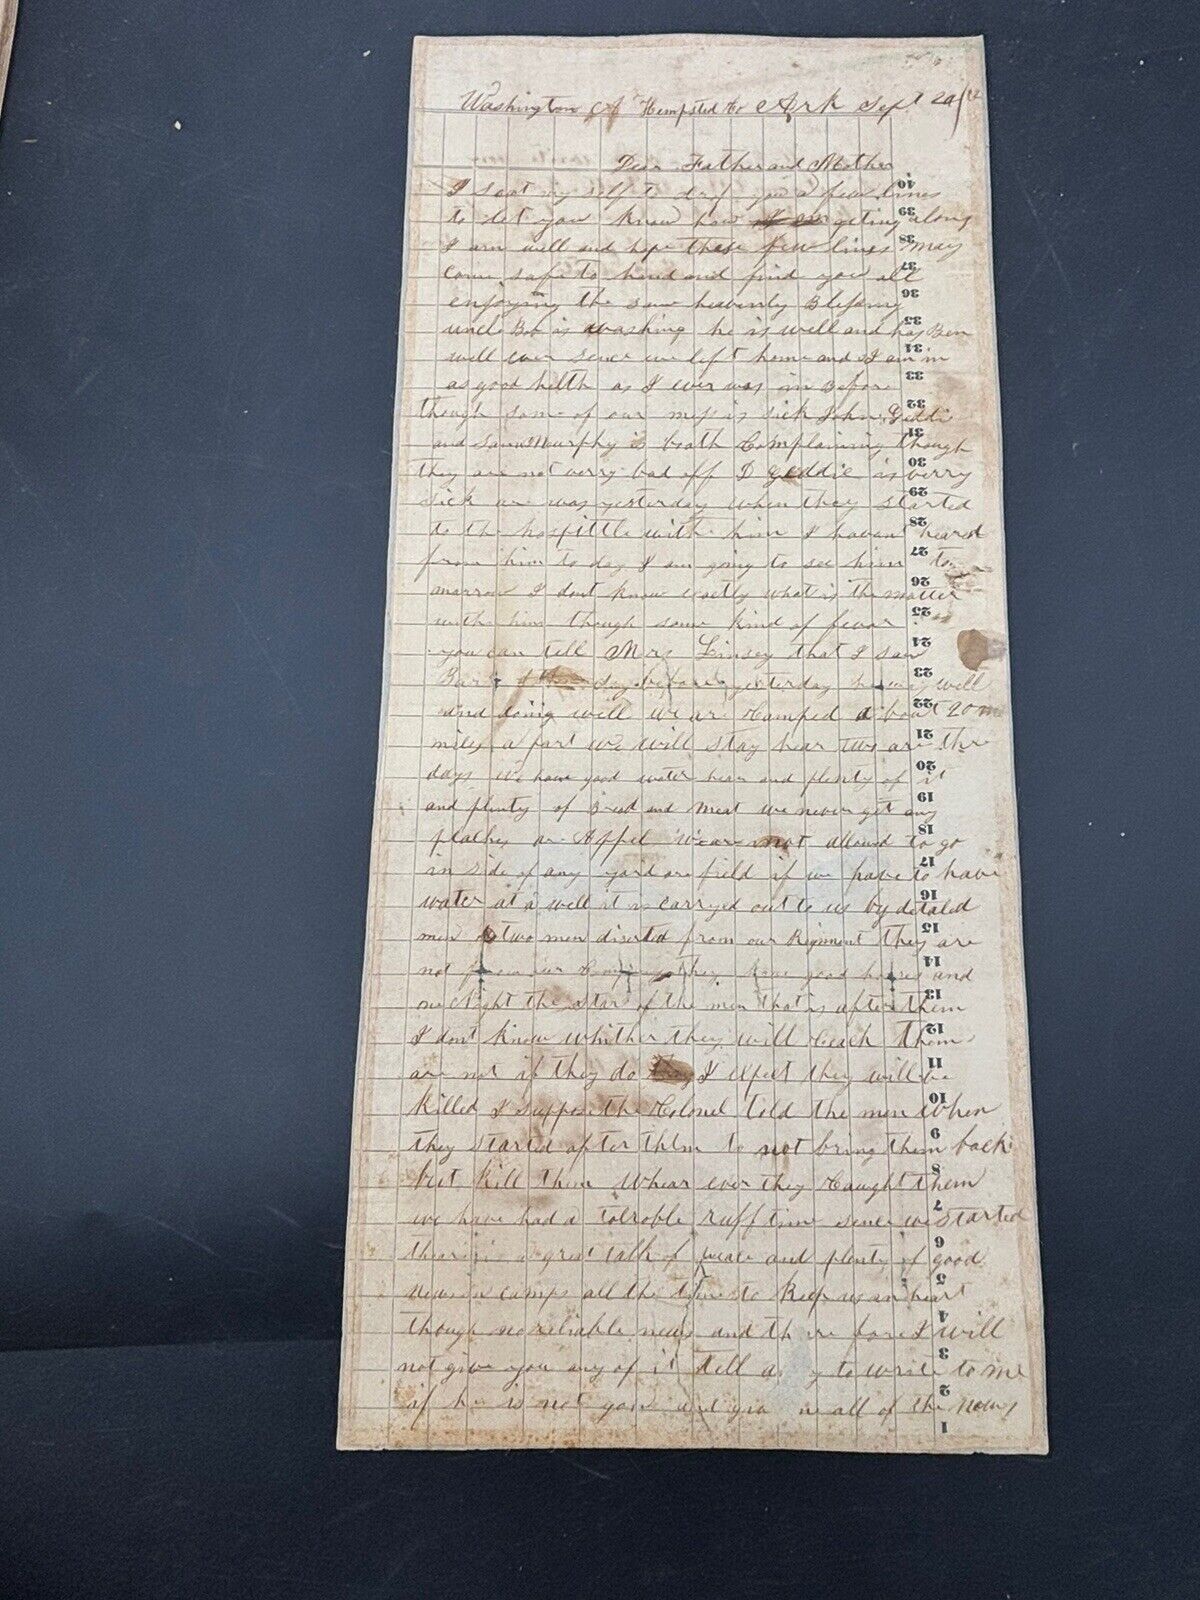 Washington Hempsted Co Ark Sept 20
Dear Father and Mother
I seat my self to drop you a few lines
to let you know how I am getting along
I am well and hope these few lines may
come safe to hand and find you all
enjoying the same heavenly Blessing
uncle Bob is washing he is well and has Ben
well ever sence we left home and I am in
as good helth as I ever was in Before
though some of our mess is sick John Geddi
and Sam Murphy is boath Complaining though
they are not verry bad off D Geddie is verry
sick are was yesterday when they started
to the hospittle with him I havant heared
from him to day I am going to see him to
marrow I dont know exactly what is the matter
with him though some kind of fevor
you can tell Mrs Linsey that I saw
day before yesterday he was well
and doing well we are Camped about 20
miles a part we will stay hear two are thre
days we have good water hear and plenty of it
and plenty of Bread and meat we never get any
peaches are Appel we are not allowed to go
in side of any yard are field if we have to have
water at a well it is carryed out to us by detaled
men two men diserted from our Regiment they are
not from our Company they have good horses and
one Night the start of the men that is after them
I dont know whither they will Ceach them
are not if they do I expect they will be
killed I suppose the Colonel told the men when
they started after them to not bring them back
but kill them whear ever they Caught them
we have had a tolroble ruff time sence we started
thear is a great talk of peace and plenty of good
news in camps all the time to keep us in heart
though no reliable news and th re fore I will
not give you any of it tell a y to write to me
if he is not gone and giv me all of the news
40
39
38
37
36
35
34
33
32
31
30
29
28
27
26
25
24
23
22
21
20
19
18
17
16
15
14
13
12
11
10
9
8
7
6
5
4
3
2
1